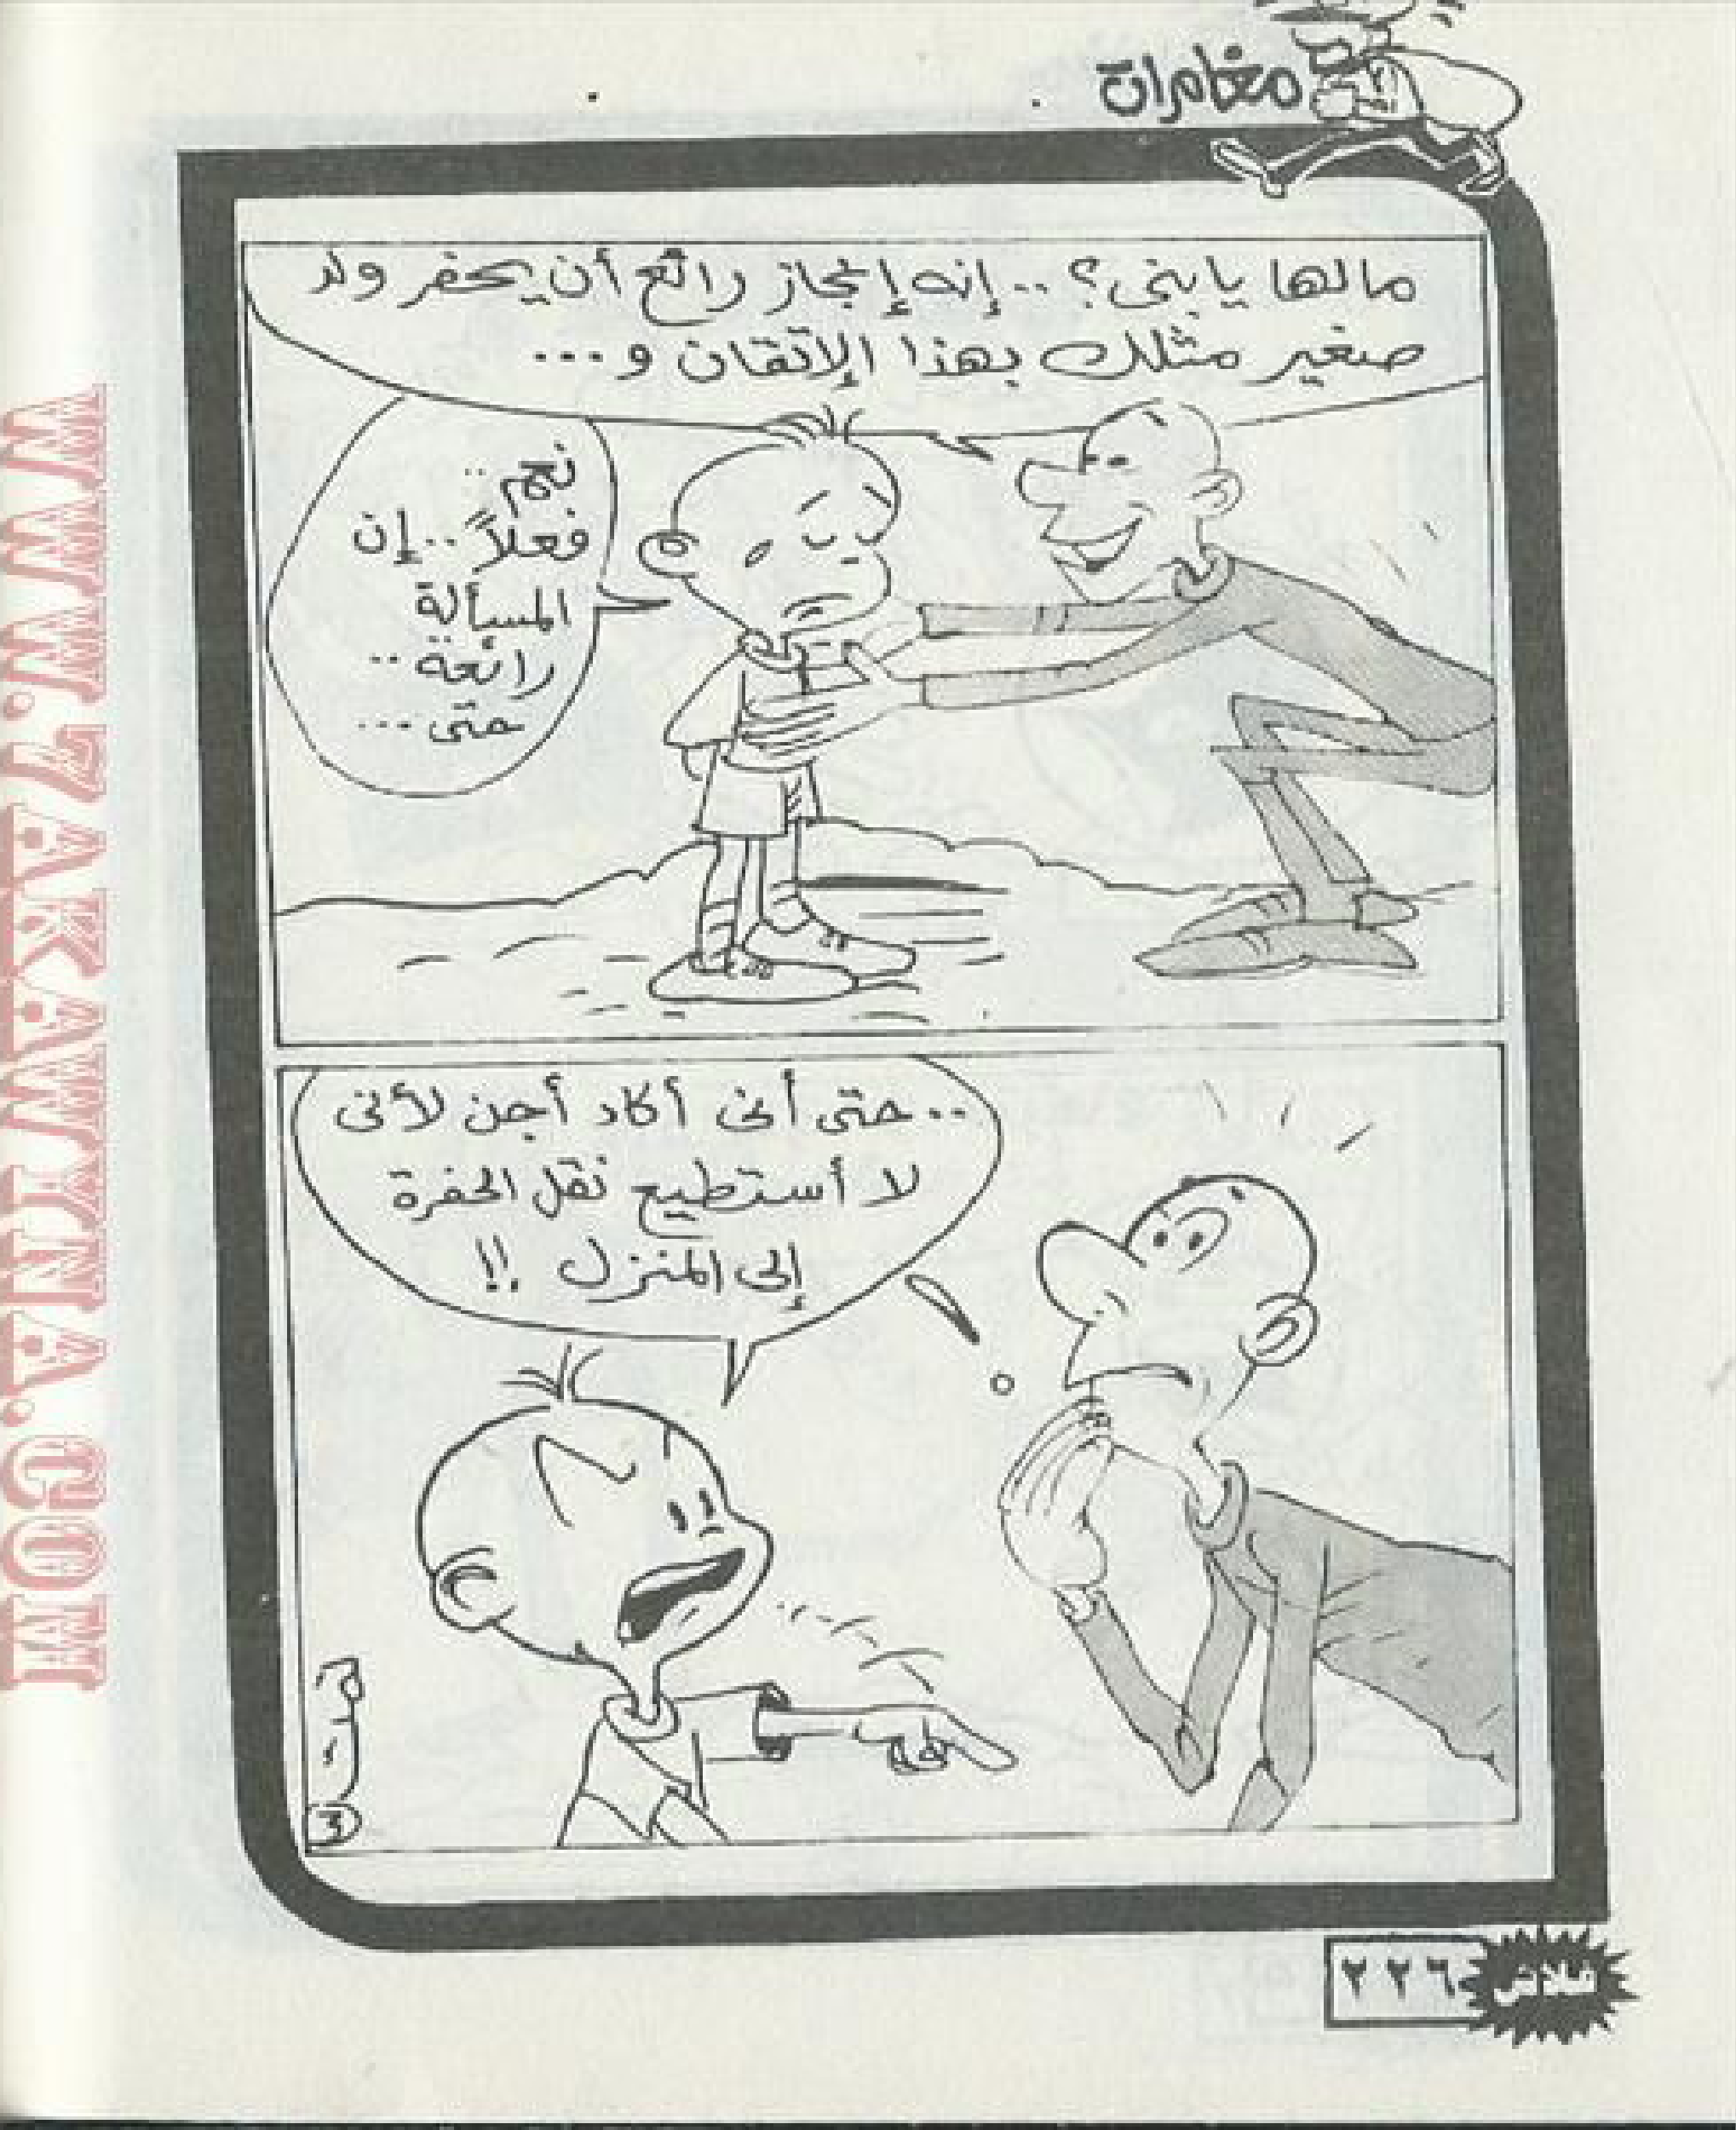 مغامرات
مالها يابنى؟ ..إنه إنجاز رائع أن يحفر ولد
صغير مثلك بهذا الإتقان و...
نعم ..
فعلاً ..إن
المسألة
رائعة ..
حتى ...
..حتى أنى أكاد أجن لأنى
لا أستطيع نقل الحفرة
إلى المنزل !!
فلاش
٢٢٦
WWW.7AKAWTNA.COM